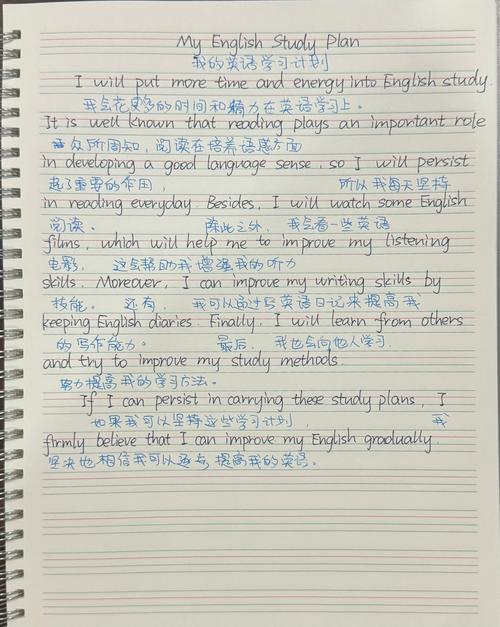 My English Study Plan
我的英语学习计划
I will put more time and energy into English study.
我会花更多的时间和精力在英语学习上。
It is well known that reading plays an important role
众所周知，阅读在培养语感方面
in developing a good language sense, so I will persist
起了重要的作用， 所以我每天坚持
in reading everyday. Besides, I will watch some English
阅读。 除此之外， 我会看一些英语
films, which will help me to improve my listening
电影， 这会帮助我增强我的听力
skills. Moreover, I can improve my writing skills by
技能。 还有， 我可以通过写英语日记来提高我
keeping English diaries. Finally, I will learn from others
的写作能力。 最后， 我也会向他人学习，
and try to improve my study methods.
努力提高我的学习方法。
If I can persist in carrying these study plans, I
如果我可以坚持这些学习计划， 我
firmly believe that I can improve my English gradually.
坚决地相信我可以逐步提高我的英语。